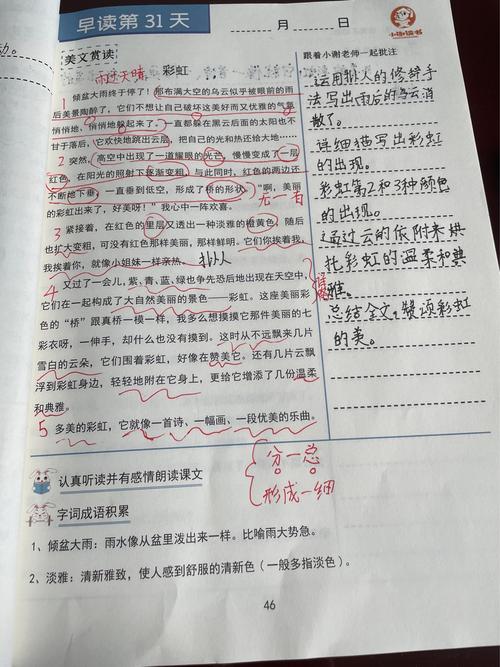 早读第 31 天
月 日
小谢读书
美文赏读
雨过天晴
彩虹
1 倾盆大雨终于停了！那布满大空的乌云似乎被眼前的雨
后美景陶醉了，它们不想让自己破坏这美好而又优雅的气氛
悄悄地、悄悄地躲起来了。一直都躲在黑云后面的太阳也不
甘于落后，它欢快地跳出云层，把自己的光和热还给大地……
2 突然，高空中出现了一道耀眼的光芒，慢慢变成了一层
红色，在阳光的照射下逐渐变粗。与此同时，红色的两边还
不断地下垂，一直垂到低空，形成了桥的形状。“啊，美丽
的彩虹出来了，好美呀！”我心中一阵欢喜。
3 紧接着，在红色的里层又透出一种淡雅的橙黄色，随后
也扩大变粗，可没有红色那样美丽，那样鲜明。它们你挨着我，
我挨着你，就像小姐妹一样亲热。
拟人
4 又过了一会儿，紫、青、蓝、绿也争先恐后地出现在天空中，
它们在一起构成了大自然美丽的景色——彩虹。这座美丽彩虹
的“桥”跟真桥一模一样，我多么想摸摸它那件美丽的七
彩衣呀，一伸手，却什么也没有摸到。这时从不远飘来几片
雪白的云朵，它们围着彩虹，好像在赞美它。还有几片云飘
浮到彩虹身边，轻轻地附在它身上，更给它增添了几份温柔
和典雅。
5 多美的彩虹，它就像一首诗、一幅画、一段优美的乐曲。
跟着小谢老师一起批注
运用拟人的修辞手
法写出雨后的乌云消
散了。
详细描写出彩虹
的出现。
彩虹第2和3种颜色
的出现。
通过云的依附来烘
托彩虹的温柔和典
雅。
总结全文，赞颂彩虹
的美。
分一总
形成一细
认真听读并有感情朗读课文
字词成语积累
1、倾盆大雨：雨水像从盆里泼出来一样。比喻雨大势急。
2、淡雅：清新雅致，使人感到舒服的清新色（一般多指淡色）。
46